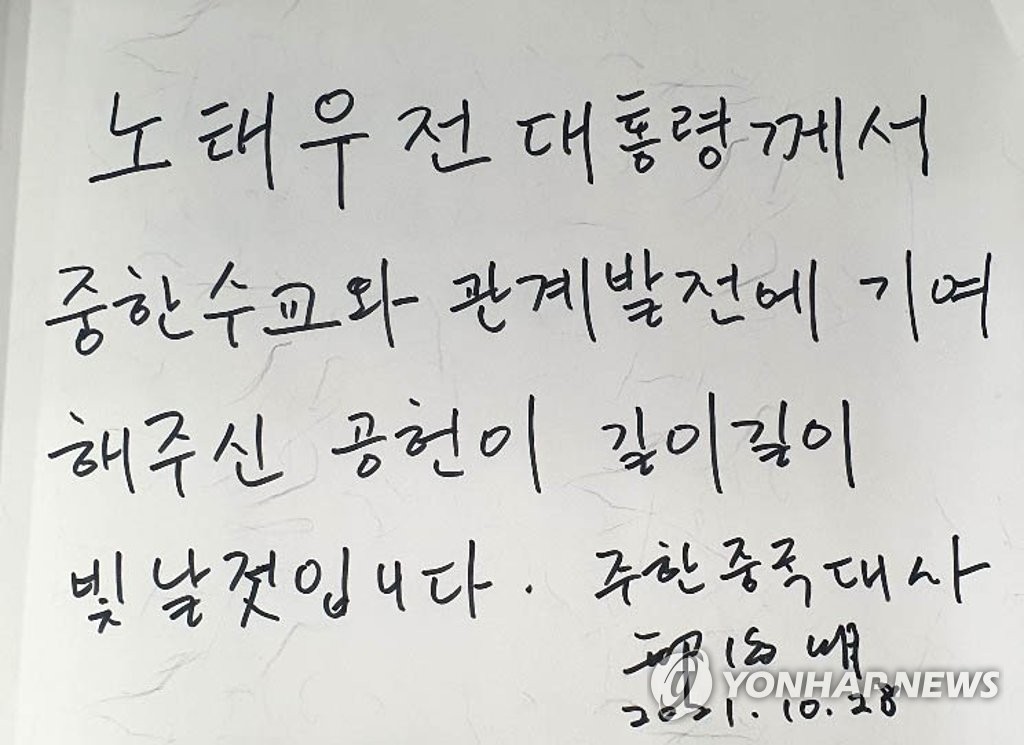 노태우 전 대통령께서
중한수교와 관계발전에 기여
해주신 공헌이 길이길이
빛날것입니다. 주한중국대사
YONHAPNEWS
2021.10.28